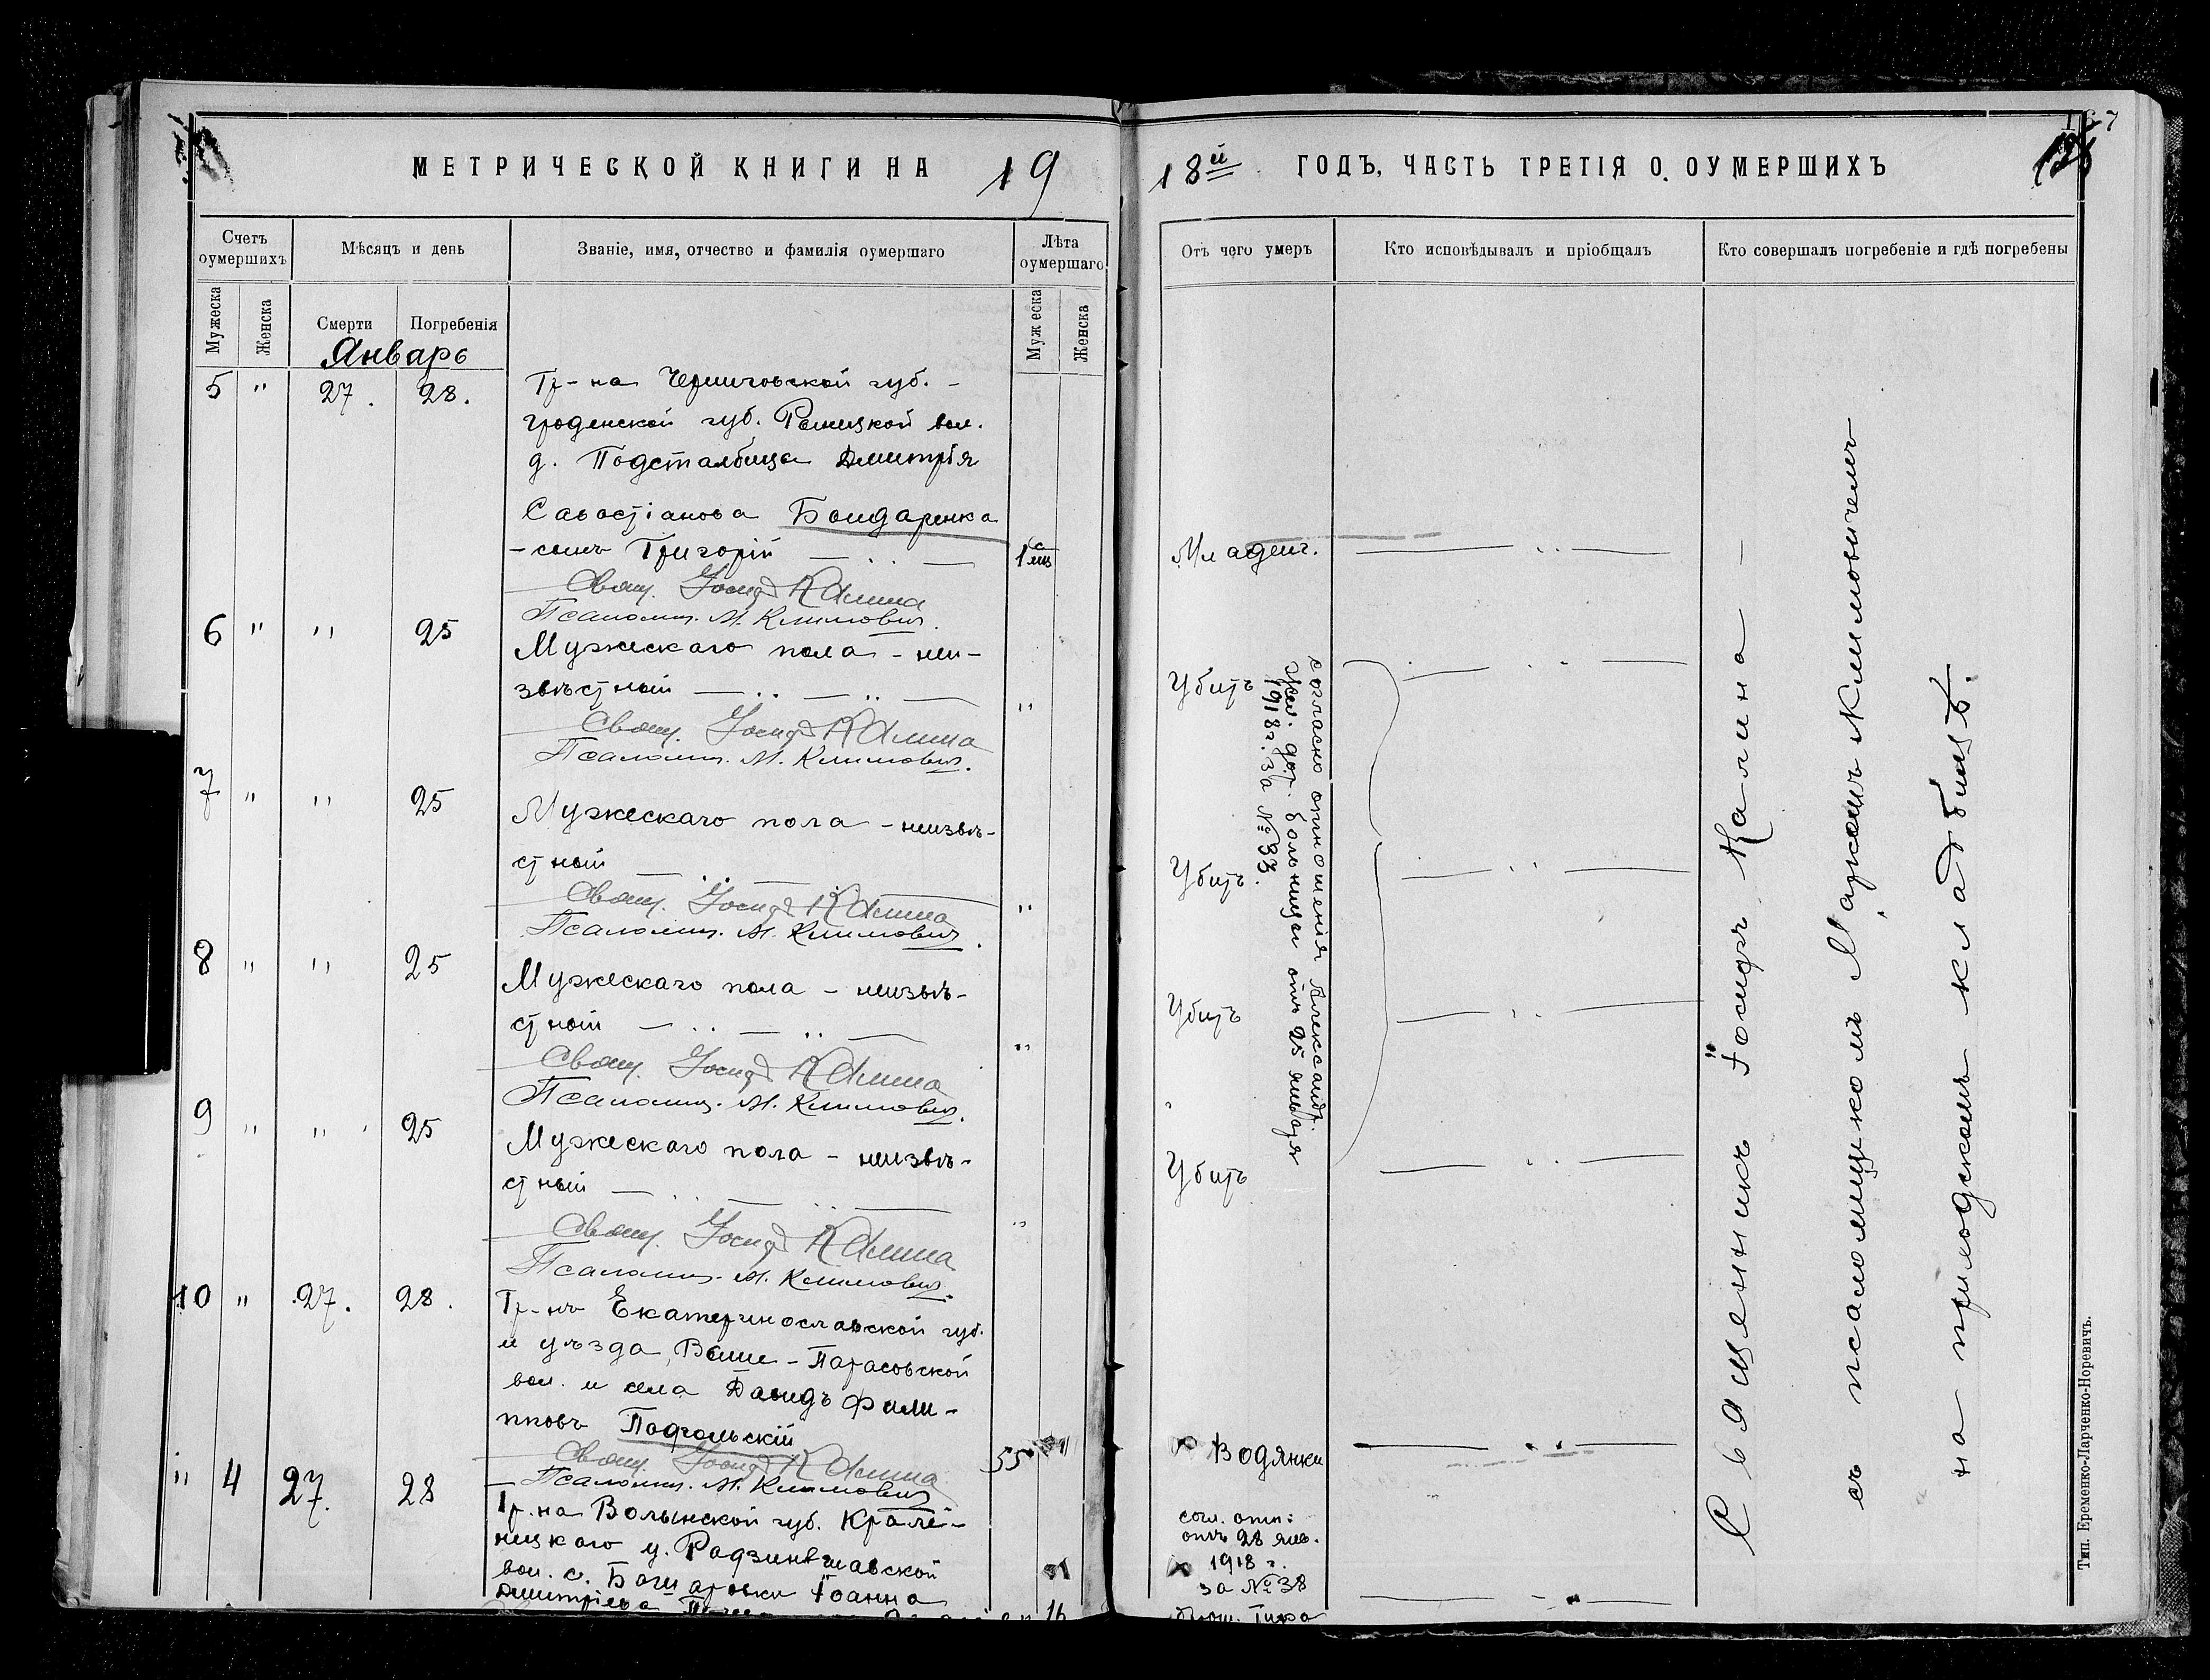 МЕТРИЧЕСКОЙ КНИГИ НА 19
Счетъ оумершихъ
Мѣсяцъ и день
Званіе, имя, отчество и фамилія оумершаго
Лѣта оумершаго
Мужеска
Женска
Смерти
Погребенія
Мужеска
Женска
Январь
5 " 27. 28.
Гр-на Черниговской губ. -
гроденской губ. вол.
д. Дмитрія
Савостіанова Бондаренка
- сынъ Григорій
1 мцъ
Свящ. Іосифъ Калина
Псаломщ. М. Климовичъ.
6 " " 25
Мужескаго пола - неи-
звѣстный "
Свящ. Іосифъ Калина
Псаломщ. М. Климовичъ.
7 " " 25
Мужескаго пола - неизвѣ-
стный "
Свящ. Іосифъ Калина
Псаломщ. М. Климовичъ.
8 " " 25
Мужескаго пола - неизвѣ-
стный "
Свящ. Іосифъ Калина
Псаломщ. М. Климовичъ.
9 " " 25
Мужескаго пола - неизвѣ-
стный "
Свящ. Іосифъ Калина
Псаломщ. М. Климовичъ.
10 " 27. 28.
Гр-нъ Екатеринославской губ.
и уѣзда, - Тарасовской
вол. и села Давидъ Фили-
пповъ Подгольскій
55
Свящ. Іосифъ Калина
Псаломщ. М. Климовичъ
" 4 27. 28
Гр-на Волынской губ.
у.
вол. с. Іоанна
Дмитріева
16
167
18й ГОДЪ, ЧАСТЬ ТРЕТІЯ О ОУМЕРШИХЪ
Отъ чего умеръ
Кто исповѣдывалъ и пріобщалъ
Кто совершалъ погребеніе и гдѣ погребены
Младенч.
Убитъ
Убитъ
Убитъ
Убитъ
согласно отношенія Александр.
больницы отъ 25 января
1918 г. за № 33.
Водянки
согл. отн:
отъ 28 янв.
1918 г.
за № 38
Тифа
Священникъ Іосифъ Калина -
съ псаломщикомъ Маркомъ Климовичемъ
на приходскомъ кладбищѣ.
Тип. Еременко-Ларченко-Норевичъ.